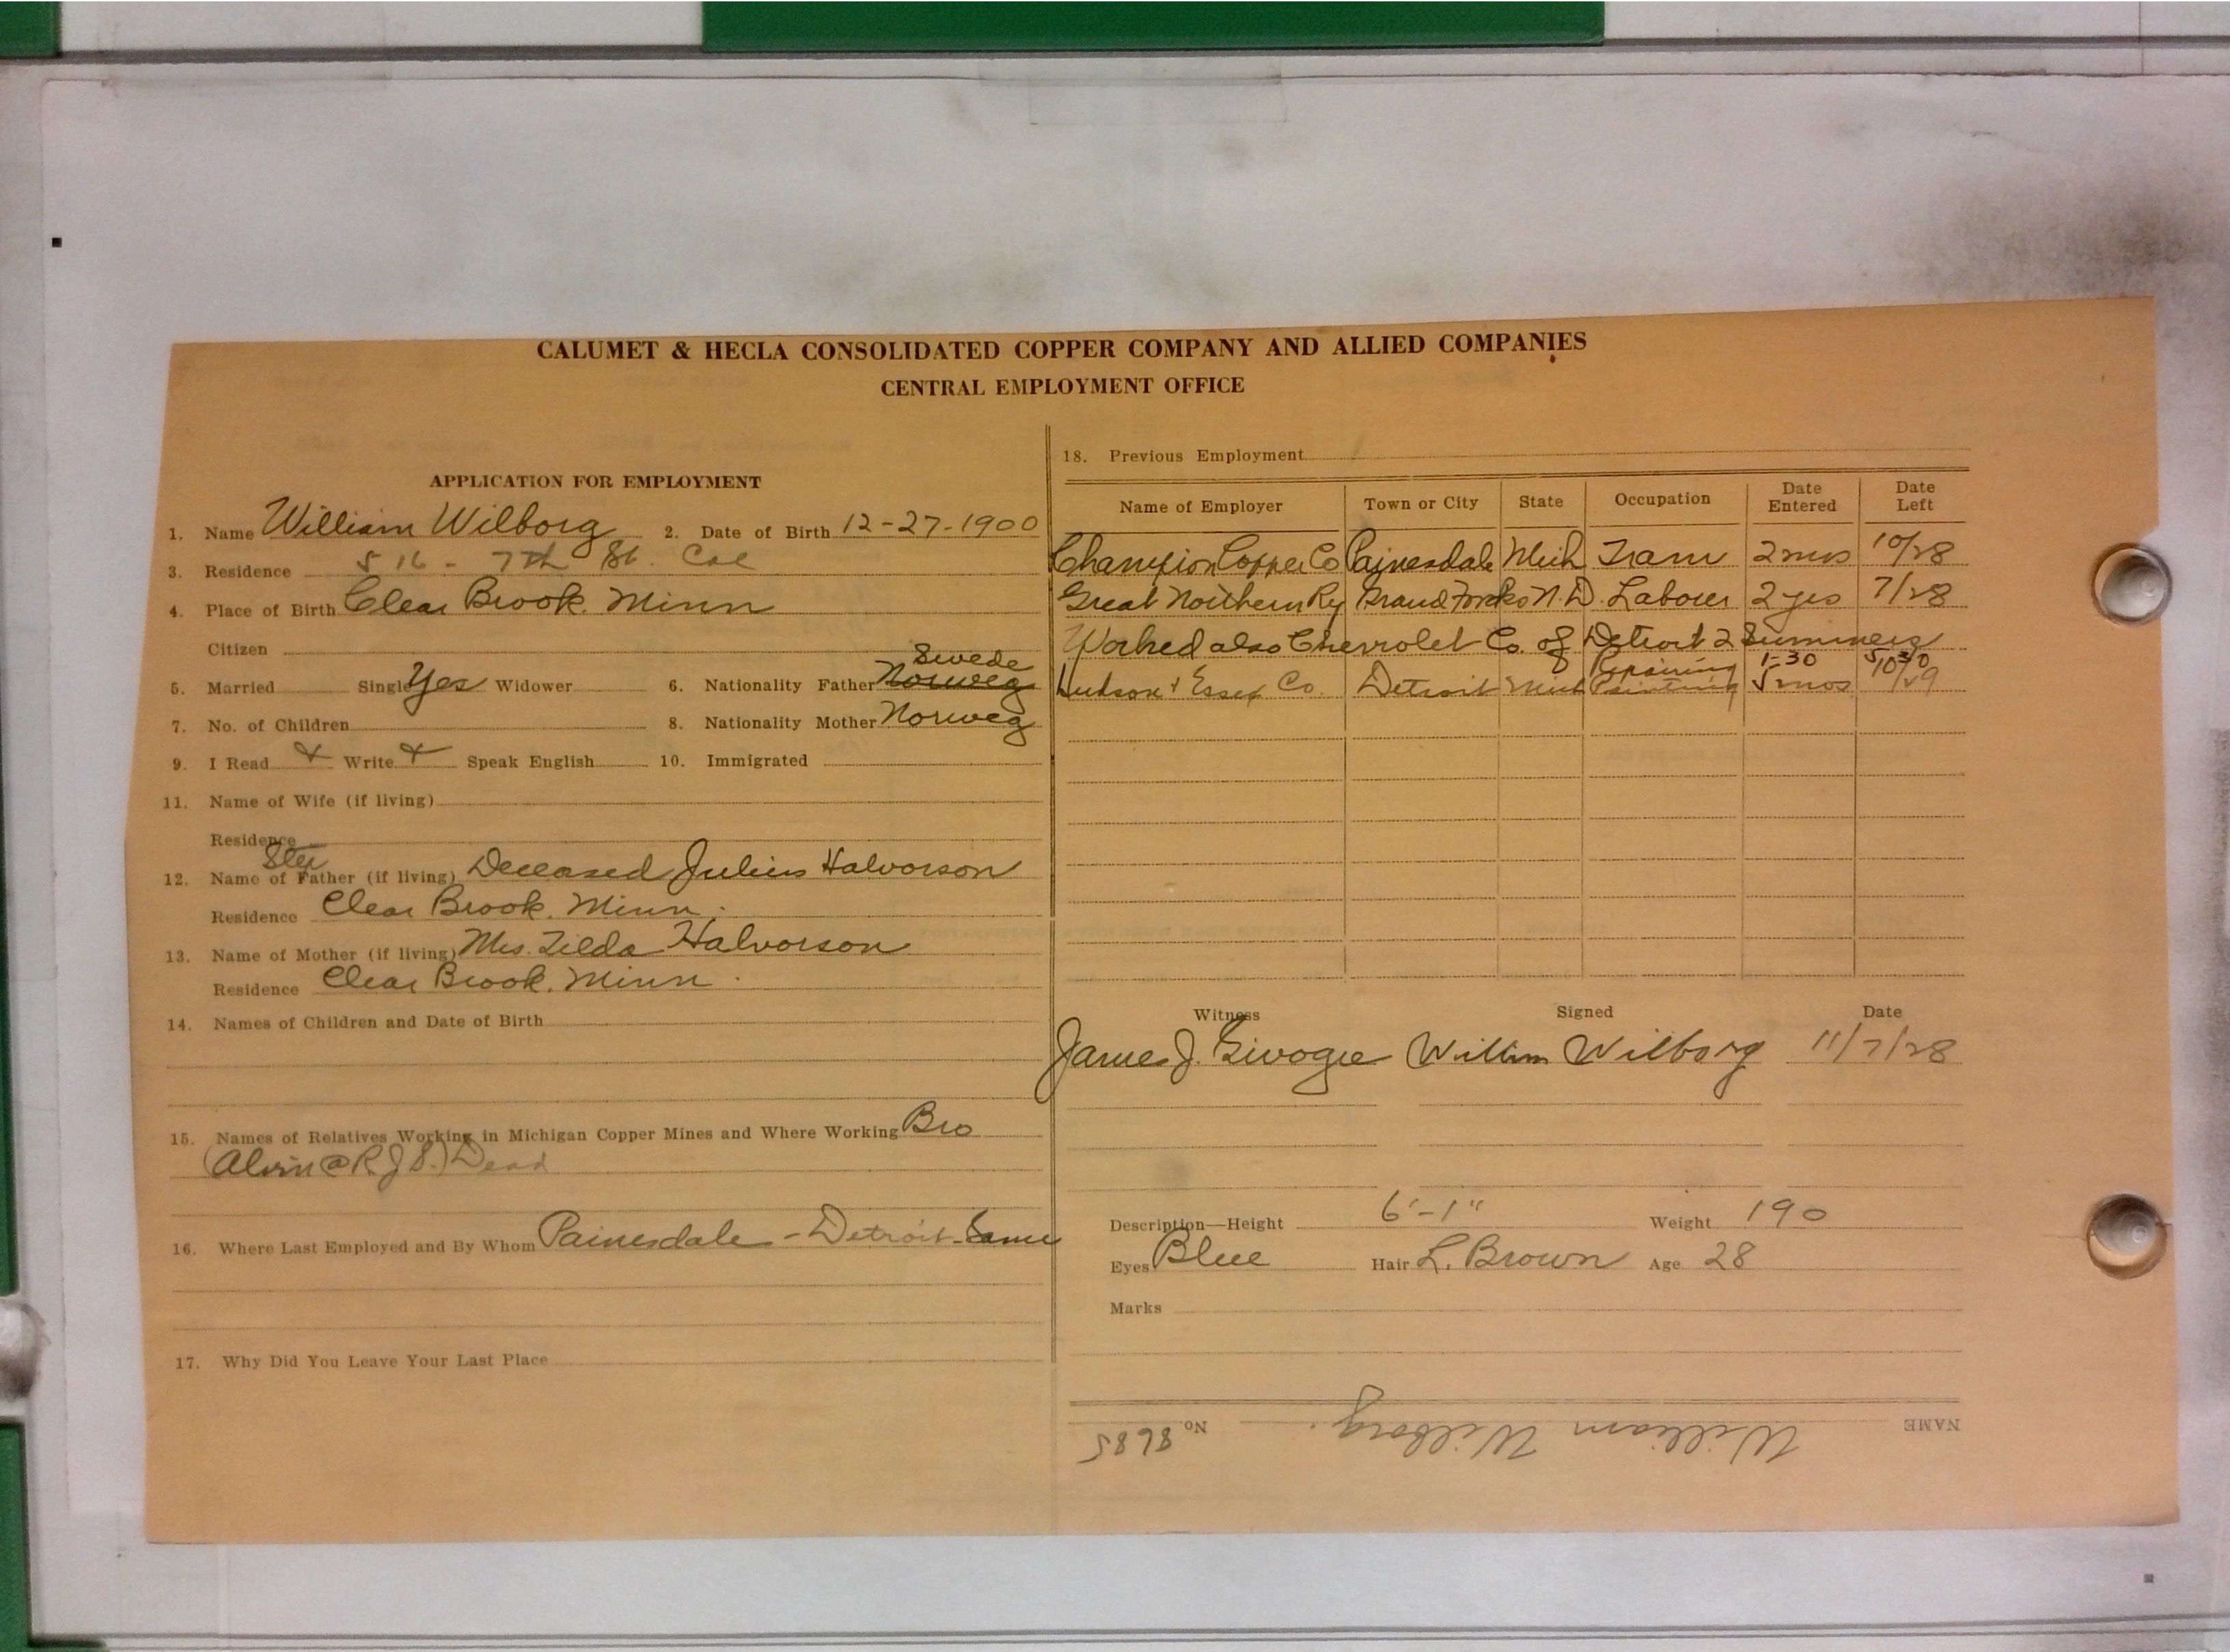 CALUMET & HECLA CONSOLIDATED COPPER COMPANY AND ALLIED COMPANIES
CENTRAL EMPLOYMENT OFFICE
APPLICATION FOR EMPLOYMENT
1. Name William Wilborg 2. Date of Birth 12-27-1900
3. Residence 516 - 7th St. Cal
4. Place of Birth Clear Brook. Minn
Citizen
Swede
5. Married Single Yes Widower 6. Nationality Father Norweg
7. No. of Children 8. Nationality Mother Norweg
9. I Read & Write & Speak English 10. Immigrated
11. Name of Wife (if living)
Residence
Step
12. Name of Father (if living) Deceased Julius Halvorson
Residence Clear Brook. Minn.
13. Name of Mother (if living) Mrs. Tilda Halvorson
Residence Clear Brook. Minn.
14. Names of Children and Date of Birth
15. Names of Relatives Working in Michigan Copper Mines and Where Working Bro
(Alvin @ R J S.) Dead
16. Where Last Employed and By Whom Painesdale - Detroit - Same
17. Why Did You Leave Your Last Place
18. Previous Employment
Name of Employer Town or City State Occupation Date Entered Date Left
Champion Copper Co Painesdale Mich Tram 2 mos 10/28
Great Northern Ry Grand Forks N.D. Laborer 2 yrs 7/28
Worked also Chevrolet Co. of Detroit 2 Summers
Repairing 1-30 5 30
Hudson & Essex Co. Detroit Mich Painting 5 mos 10/29
Witness Signed Date
James J. William Wilborg 11/7/28
Description—Height 6'-1" Weight 190
Eyes Blue Hair L. Brown Age 28
Marks
NAME William Wilborg. No. 8685